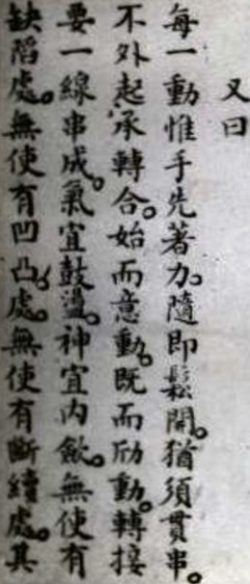 又曰
每一動惟手先著力。隨即鬆開。猶須貫串。
不外起承轉合。始而意動。既而勁動。轉接
要一線串成。氣宜鼓盪。神宜內歛。無使有
缺陷處。無使有凹凸處。無使有斷續處。其